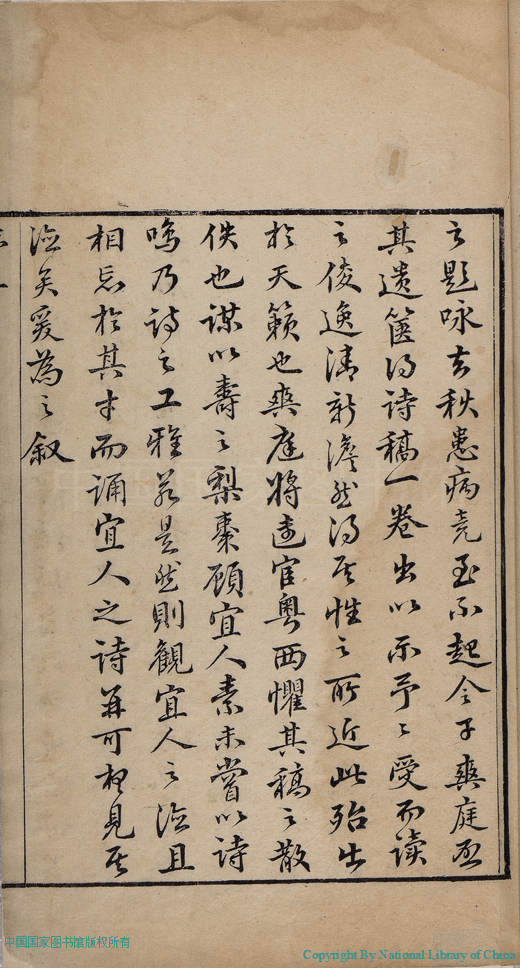 之題咏去秋患病竟至不起令子爽庭
其遺篋得詩稿一卷出以示予予受而讀
之俊逸清新澹然得其性之所近此殆出
於天籟也爽庭將遠宦粤西懼其稿之散
佚也謀以壽之梨棗顧宜人素未嘗以詩
鳴乃詩之工雅若是然則觀宜人之德且
相忘於其才而誦宜人之詩并可想見其
德矣爰為之叙
中国国家图书馆版权所有
Copyright By National Library of China